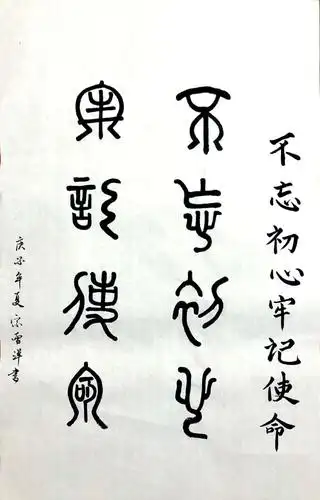 不忘初心牢记使命
不忘初心
牢記使命
庚子年夏宗雪洋書